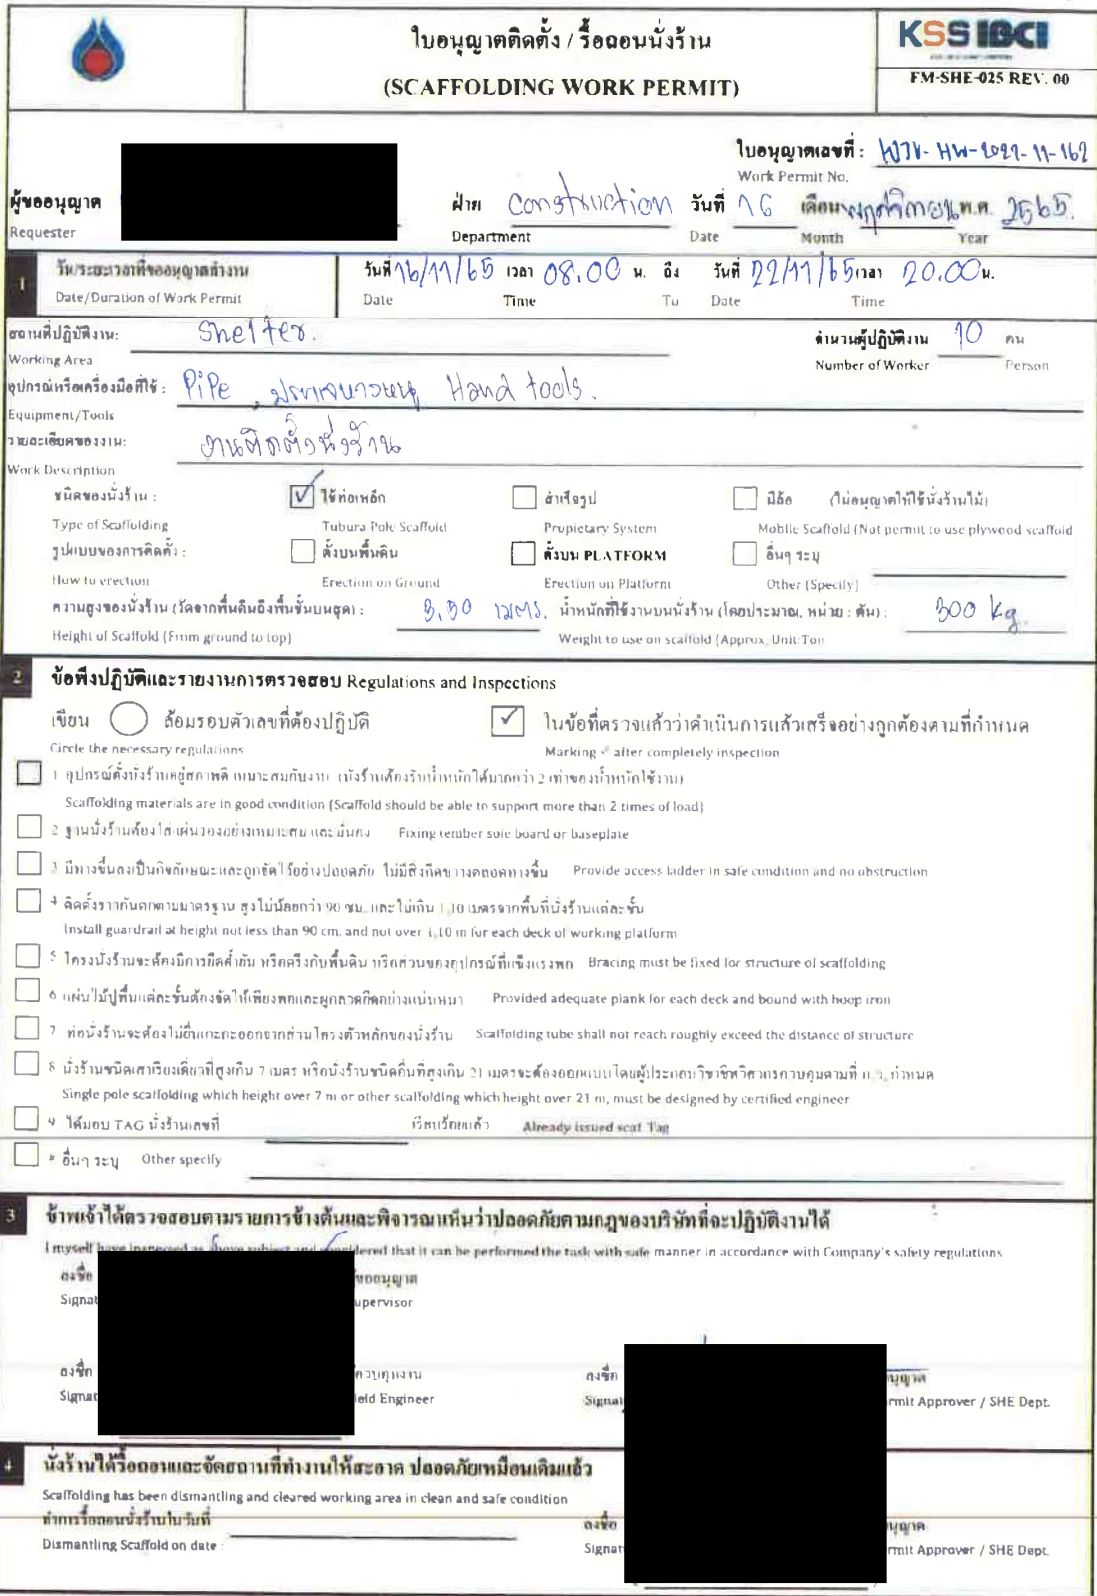 ใบอนุญาตติดตั้ง / รื้อถอนนั่งร้าน
(SCAFFOLDING WORK PERMIT)
KSS IBCI
FM-SHE-025 REV. 00
ใบอนุญาตเลขที่ :
Work Permit No.
ผู้ขออนุญาต ฝ่าย Construction วันที่ 16 เดือน พฤศจิกายน พ.ศ. 2565
Requester Department Date Month Year
1 วัน/ระยะเวลาที่ขออนุญาตทำงาน วันที่ 16/11/65 เวลา 08.00 น. ถึง วันที่ 22/11/65 เวลา 20.00 น.
Date/Duration of Work Permit Date Time To Date Time
สถานที่ปฏิบัติงาน: Shelter. จำนวนผู้ปฏิบัติงาน 10 คน
Working Area Number of Worker Person
อุปกรณ์หรือเครื่องมือที่ใช้ : Pipe, Hand tools.
Equipment/Tools
รายละเอียดของงาน: งานติดตั้งนั่งร้าน
Work Description
ชนิดของนั่งร้าน : ✓ ใช้ท่อเหล็ก สำเร็จรูป มีล้อ (ไม่อนุญาตให้ใช้นั่งร้านไม้)
Type of Scaffolding Tubura Pole Scaffold Propietary System Mobile Scaffold (Not permit to use plywood scaffold
รูปแบบของการติดตั้ง : ตั้งบนพื้นดิน ตั้งบน PLATFORM อื่นๆ ระบุ
How to erection Erection on Ground Erection on Platform Other (Specify)
ความสูงของนั่งร้าน (วัดจากพื้นดินถึงพื้นชั้นบนสุด) : เมตร. น้ำหนักที่ใช้งานบนนั่งร้าน (โดยประมาณ, หน่วย : ตัน) : 300 kg.
Height of Scaffold (From ground to top) Weight to use on scaffold (Approx, Unit:Ton
2 ข้อพึงปฏิบัติและรายงานการตรวจสอบ Regulations and Inspections
เขียน ล้อมรอบตัวเลขที่ต้องปฏิบัติ ✓ ในข้อที่ตรวจแล้วว่าดำเนินการแล้วเสร็จอย่างถูกต้องตามที่กำหนด
Circle the necessary regulations Marking ✓ after completely inspection
1 อุปกรณ์ตั้งนั่งร้านอยู่สภาพดี เหมาะสมกับงาน (นั่งร้านต้องรับน้ำหนักได้มากกว่า 2 เท่าของน้ำหนักใช้งาน)
Scaffolding materials are in good condition (Scaffold should be able to support more than 2 times of load)
2 ฐานนั่งร้านต้องใส่แผ่นรองอย่างเหมาะสม และมั่นคง Fixing tember sole board or baseplate
3 มีทางขึ้นลงเป็นกิจลักษณะและถูกจัดไว้อย่างปลอดภัย ไม่มีสิ่งกีดขวางตลอดทางขึ้น Provide access ladder in safe condition and no obstruction
4 ติดตั้งราวกันตกตามมาตรฐาน สูงไม่น้อยกว่า 90 ซม. และไม่เกิน 1.10 เมตรจากพื้นที่นั่งร้านแต่ละชั้น
Install guardrail at height not less than 90 cm. and not over 1.10 m for each deck of working platform
5 โครงนั่งร้านจะต้องมีการยึดค้ำยัน หรือตรึงกับพื้นดิน หรือส่วนของอุปกรณ์ที่แข็งแรงพอ Bracing must be fixed for structure of scaffolding
6 แผ่นไม้ปูพื้นแต่ละชั้นต้องจัดให้เพียงพอและผูกลวดยึดอย่างแน่นหนา Provided adequate plank for each deck and bound with hoop iron
7 ท่อนั่งร้านจะต้องไม่ยื่นเกะกะออกจากส่วนโครงตัวหลักของนั่งร้าน Scaffolding tube shall not reach roughly exceed the distance of structure
8 นั่งร้านชนิดเสาเรียงเดี่ยวที่สูงเกิน 7 เมตร หรือนั่งร้านชนิดอื่นที่สูงเกิน 21 เมตรจะต้องออกแบบโดยผู้ประกอบวิชาชีพวิศวกรควบคุมตามที่ กำหนด
Single pole scaffolding which height over 7 m or other scaffolding which height over 21 m, must be designed by certified engineer
9 ได้มอบ TAG นั่งร้านเลขที่ เรียบร้อยแล้ว Already issued scaf Tag
* อื่นๆ ระบุ Other specify
3 ข้าพเจ้าได้ตรวจสอบตามรายการข้างต้นและพิจารณาเห็นว่าปลอดภัยตามกฎของบริษัทที่จะปฏิบัติงานได้
I myself have inspected as above subject and considered that it can be performed the task with safe manner in accordance with Company's safety regulations
ลงชื่อ ขออนุญาต
Signat upervisor
ลงชื่อ ควบคุมงาน ลงชื่อ นุญาต
Signat eld Engineer Signat rmit Approver / SHE Dept.
4 นั่งร้านได้รื้อถอนและจัดสถานที่ทำงานให้สะอาด ปลอดภัยเหมือนเดิมแล้ว
Scaffolding has been dismantling and cleared working area in clean and safe condition
ทำการรื้อถอนนั่งร้านในวันที่ ลงชื่อ นุญาต
Dismantling Scaffold on date : Signat rmit Approver / SHE Dept.